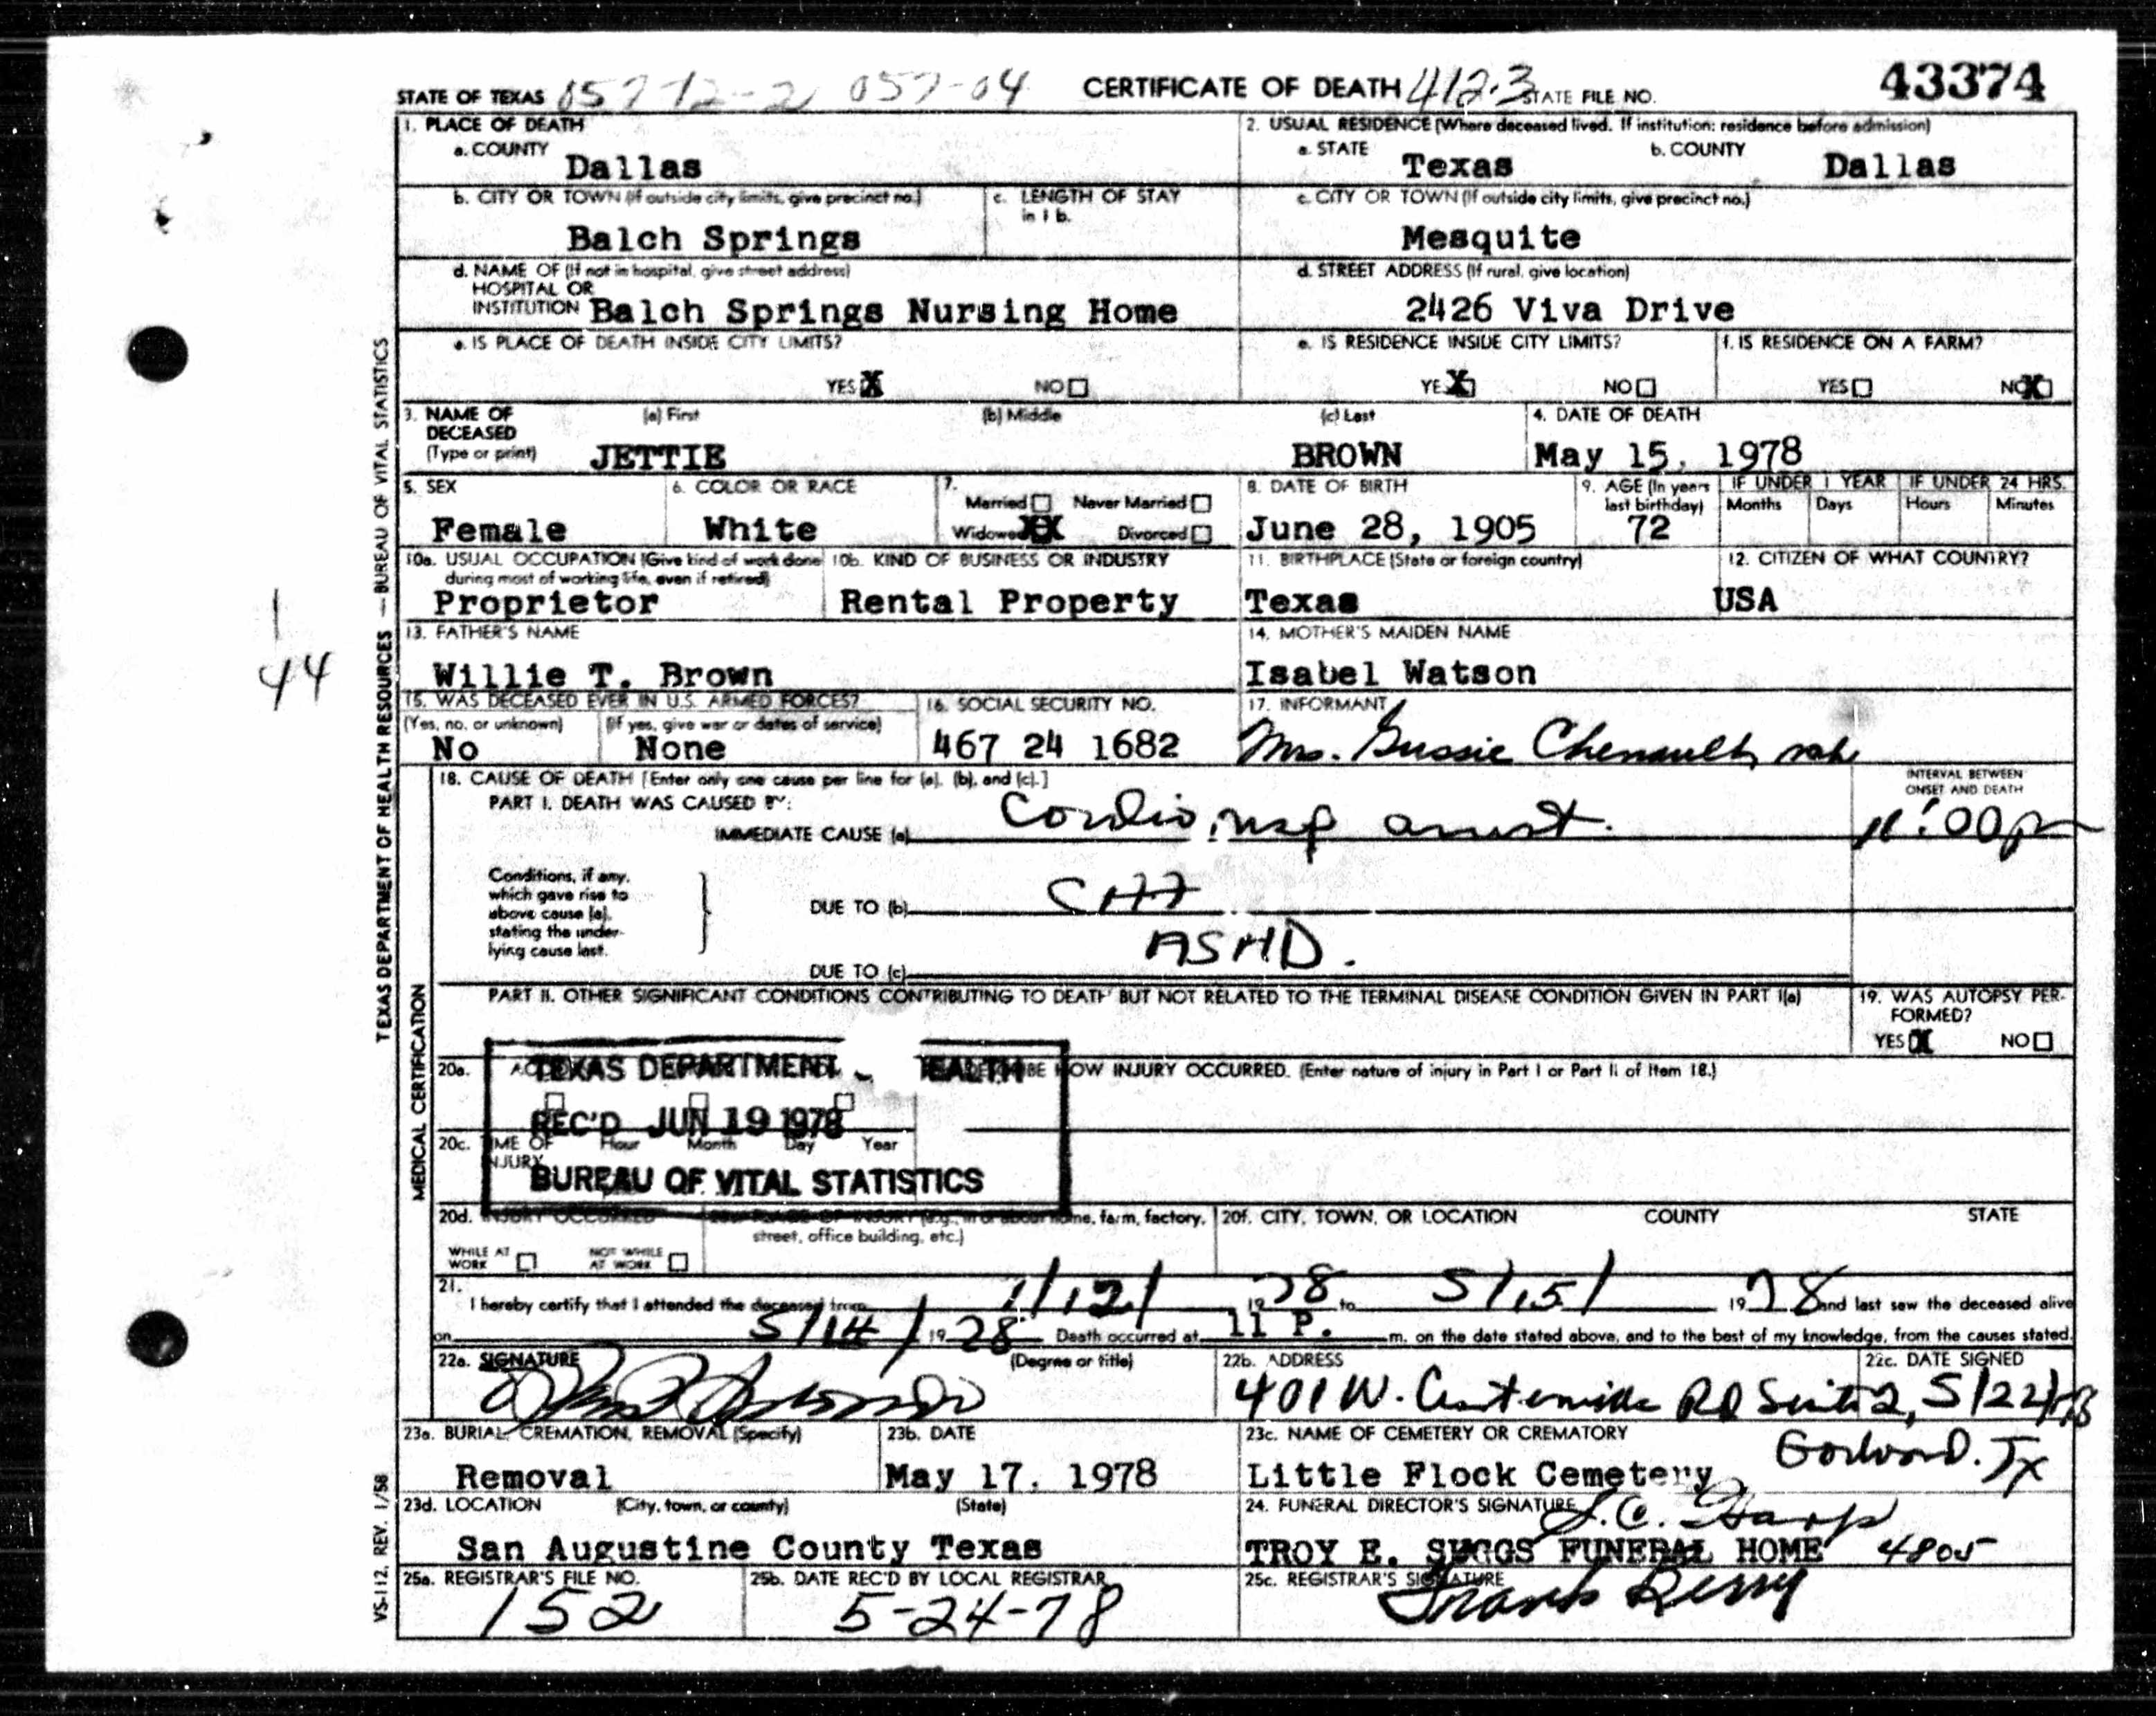 STATE OF TEXAS 05772-2 057-04 CERTIFICATE OF DEATH 412.3 STATE FILE NO. 43374
1. PLACE OF DEATH
a. COUNTY
Dallas
2. USUAL RESIDENCE (Where deceased lived. If institution: residence before admission)
a. STATE
Texas
b. COUNTY
Dallas
b. CITY OR TOWN (If outside city limits, give precinct no.)
Balch Springs
c. LENGTH OF STAY
in 1 b.
c. CITY OR TOWN (If outside city limits, give precinct no.)
Mesquite
d. NAME OF (If not in hospital, give street address)
HOSPITAL OR
INSTITUTION Balch Springs Nursing Home
d. STREET ADDRESS (If rural, give location)
2426 Viva Drive
e. IS PLACE OF DEATH INSIDE CITY LIMITS?
YES X NO
e. IS RESIDENCE INSIDE CITY LIMITS?
YES X NO
f. IS RESIDENCE ON A FARM?
YES NO X
3. NAME OF
DECEASED
(Type or print)
(a) First
JETTIE
(b) Middle
(c) Last
BROWN
4. DATE OF DEATH
May 15, 1978
5. SEX
Female
6. COLOR OR RACE
White
7.
Married Never Married
Widowed XX Divorced
8. DATE OF BIRTH
June 28, 1905
9. AGE (In years
last birthday)
72
IF UNDER 1 YEAR
Months Days
IF UNDER 24 HRS.
Hours Minutes
10a. USUAL OCCUPATION (Give kind of work done
during most of working life, even if retired)
Proprietor
10b. KIND OF BUSINESS OR INDUSTRY
Rental Property
11. BIRTHPLACE (State or foreign country)
Texas
12. CITIZEN OF WHAT COUNTRY?
USA
13. FATHER'S NAME
Willie T. Brown
14. MOTHER'S MAIDEN NAME
Isabel Watson
15. WAS DECEASED EVER IN U.S. ARMED FORCES?
(Yes, no. or unknown)
No
(If yes, give war or dates of service)
None
16. SOCIAL SECURITY NO.
467 24 1682
17. INFORMANT
Mrs. Gussie Chenault
18. CAUSE OF DEATH [Enter only one cause per line for (a), (b), and (c).]
PART I. DEATH WAS CAUSED BY:
IMMEDIATE CAUSE (a) Cardio resp arrest.
INTERVAL BETWEEN
ONSET AND DEATH
11:00 pm
Conditions, if any,
which gave rise to
above cause (a),
stating the under-
lying cause last.
DUE TO (b) CHF
DUE TO (c) ASHD.
PART II. OTHER SIGNIFICANT CONDITIONS CONTRIBUTING TO DEATH BUT NOT RELATED TO THE TERMINAL DISEASE CONDITION GIVEN IN PART I(a)
19. WAS AUTOPSY PER-
FORMED?
YES X NO
20a.
HOW INJURY OCCURRED. (Enter nature of injury in Part I or Part II of Item 18.)
TEXAS DEPARTMENT HEALTH
REC'D JUN 19 1978
BUREAU OF VITAL STATISTICS
20c. TIME OF
INJURY
Hour Month Day Year
20d. INJURY OCCURRED
WHILE AT
WORK
NOT WHILE
AT WORK
PLACE OF INJURY (e.g., in or about home, farm, factory,
street, office building, etc.)
20f. CITY, TOWN, OR LOCATION COUNTY STATE
21.
I hereby certify that I attended the deceased from 1/12/ 1978 to 5/15/ 1978 and last saw the deceased alive
on 5/14/ 1978 Death occurred at 11 P. m. on the date stated above, and to the best of my knowledge, from the causes stated.
22a. SIGNATURE (Degree or title)
22b. ADDRESS
401 W. Centerville Rd Suite 2,
Garland. Tx
22c. DATE SIGNED
5/22/78
23a. BURIAL, CREMATION, REMOVAL (Specify)
Removal
23b. DATE
May 17, 1978
23c. NAME OF CEMETERY OR CREMATORY
Little Flock Cemetery
23d. LOCATION (City, town, or county) (State)
San Augustine County Texas
24. FUNERAL DIRECTOR'S SIGNATURE
TROY E. SUGGS FUNERAL HOME 4805
25a. REGISTRAR'S FILE NO.
152
25b. DATE REC'D BY LOCAL REGISTRAR
5-24-78
25c. REGISTRAR'S SIGNATURE
TEXAS DEPARTMENT OF HEALTH RESOURCES — BUREAU OF VITAL STATISTICS
MEDICAL CERTIFICATION
VS-112, REV. 1/58
1
44